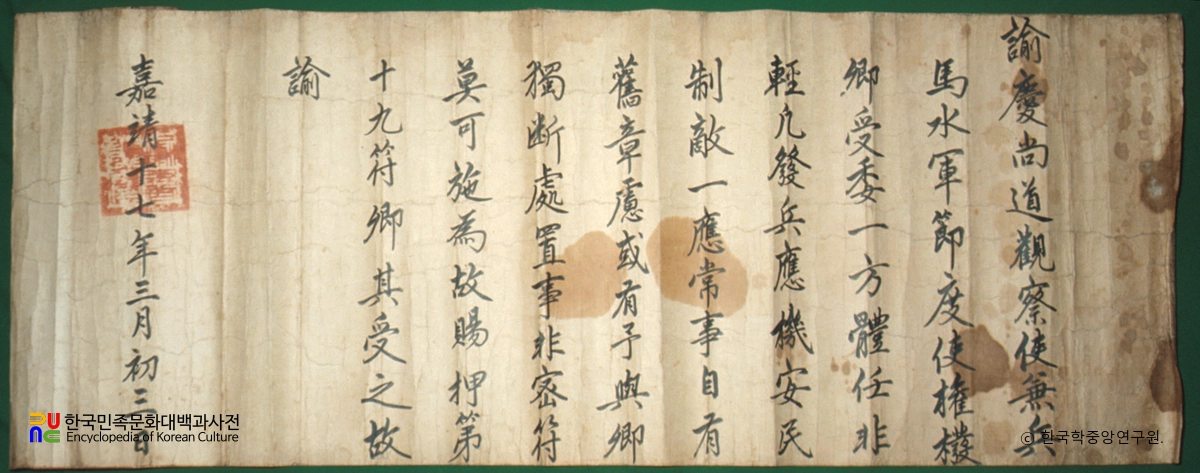 諭慶尚道觀察使兼兵
馬水軍節度使權橃
卿受委一方體任非
輕凡發兵應機安民
制敵一應常事自有
舊章慮或有予與卿
獨断處置事非密符
莫可施為故賜押第
十九符卿其受之故
諭
嘉靖十七年三月初三日
한국민족문화대백과사전
Encyclopedia of Korean Culture
© 한국학중앙연구원.